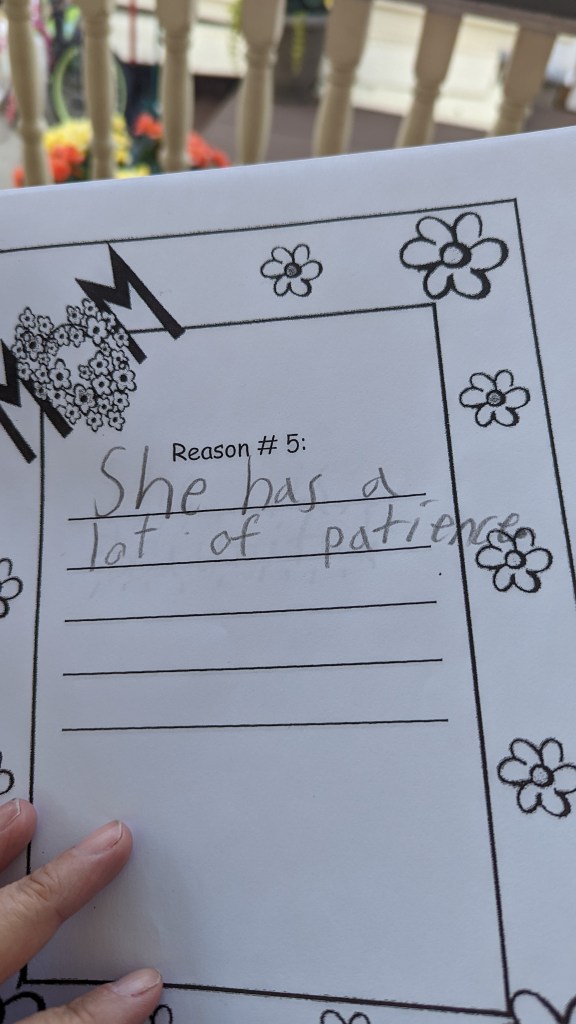 MOM
Reason # 5:
She has a
lot of patience.